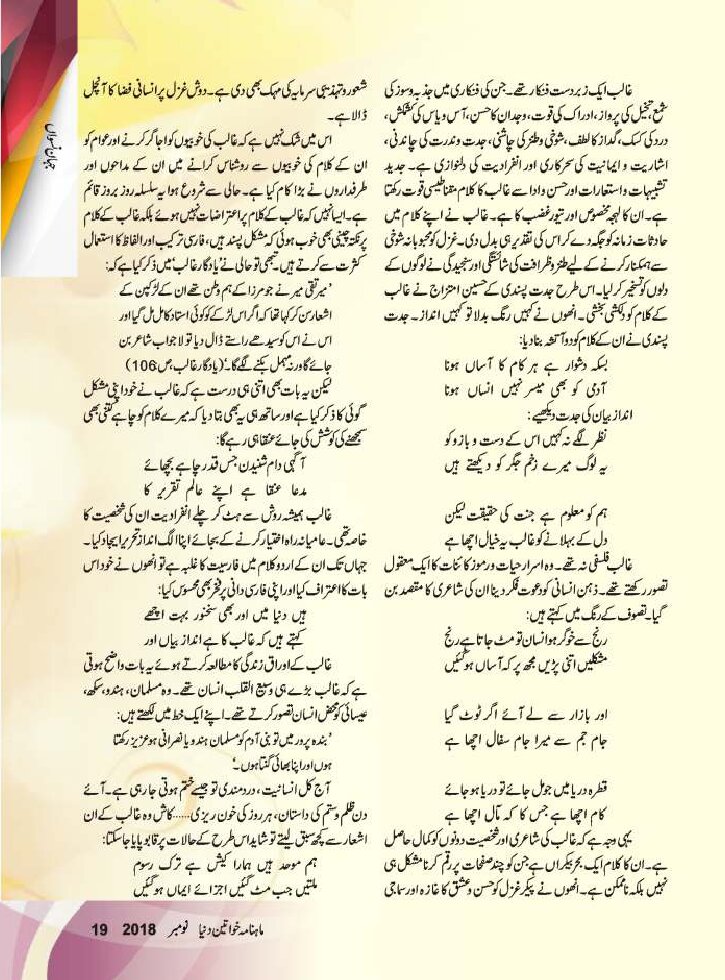 غالب ایک زبردست فنکار تھے۔ جن کی فنکاری میں جذبہ و سوز کی
شمع تخیل کی پرواز، ادراک کی قوت، وجدان کا حسن، آس و یاس کی کشمکش،
درد کی کسک، گداز کا لطف، شوخی و طنز کی چاشنی، جدت و ندرت کی چاندنی،
اشاریت و ایمائیت کی سحرکاری اور انفرادیت کی دلنوازی ہے۔ جدید
تشبیہات و استعارات اور حسن و ادا سے غالب کا کلام مقناطیسی قوت رکھتا
ہے۔ ان کا لہجہ مخصوص اور تیور غضب کا ہے۔ غالب نے اپنے کلام میں
حادثات زمانہ کو جگہ دے کر اس کی تقدیر ہی بدل دی۔ غزل کو محبوبانہ شوخی
سے ہمکنار کرنے کے لیے طنز و ظرافت کی شائستگی اور سنجیدگی نے لوگوں کے
دلوں کو تسخیر کر لیا۔ اس طرح جدت پسندی کے حسین امتزاج نے غالب
کے کلام کو دلکشی بخشی۔ انھوں نے کہیں رنگ بدلا تو کہیں انداز۔ جدت
پسندی نے ان کے کلام کو دو آتشہ بنا دیا:
بسکہ دشوار ہے ہر کام کا آساں ہونا
آدمی کو بھی میسر نہیں انساں ہونا
انداز بیان کی جدت دیکھیے:
نظر لگے نہ کہیں اس کے دست و بازو کو
یہ لوگ میرے زخم جگر کو دیکھتے ہیں
ہم کو معلوم ہے جنت کی حقیقت لیکن
دل کے بہلانے کو غالب یہ خیال اچھا ہے
غالب فلسفی نہ تھے۔ وہ اسرار حیات و رموز کائنات کا ایک معقول
تصور رکھتے تھے۔ ذہن انسانی کو دعوت فکر دینا ان کی شاعری کا مقصد بن
گیا۔ تصوف کے رنگ میں کہتے ہیں:
رنج سے خوگر ہو انسان تو مٹ جاتا ہے رنج
مشکلیں اتنی پڑیں مجھ پر کہ آساں ہو گئیں
اور بازار سے لے آئے اگر ٹوٹ گیا
جام جم سے میرا جام سفال اچھا ہے
قطرہ دریا میں جو مل جائے تو دریا ہو جائے
کام اچھا ہے جس کا کہ مآل اچھا ہے
یہی وجہ ہے کہ غالب کی شاعری اور شخصیت دونوں کو کمال حاصل
ہے۔ ان کا کلام ایک بحر بیکراں ہے جن کو چند صفحات پر رقم کرنا مشکل ہی
نہیں بلکہ ناممکن ہے۔ انھوں نے پیکر غزل کو حسن و عشق کا غازہ اور سماجی
شعور و تہذیبی سرمایہ کی مہک بھی دی ہے۔ دوش غزل پر انسانی فضا کا آنچل
ڈالا ہے۔
اس میں شک نہیں ہے کہ غالب کی خوبیوں کو اجاگر کرنے اور عوام کو
ان کے کلام کی خوبیوں سے روشناس کرانے میں ان کے مداحوں اور
طرفداروں نے بڑا کام کیا ہے۔ حالی سے شروع ہوا یہ سلسلہ روز بروز قائم
ہے۔ ایسا نہیں کہ غالب کے کلام پر اعتراضات نہیں ہوئے بلکہ غالب کے کلام
پر نکتہ چینی بھی خوب ہوئی کہ مشکل پسند ہیں، فارسی ترکیب اور الفاظ کا استعمال
کثرت سے کرتے ہیں۔ تبھی تو حالی نے 'یادگار غالب' میں ذکر کیا ہے کہ:
'میر تقی میر نے جو مرزا کے ہم وطن تھے ان کے لڑکپن کے
اشعار سن کر کہا تھا کہ اگر اس لڑکے کو کوئی استاد کامل مل گیا اور
اس نے اس کو سیدھے راستے ڈال دیا تو لاجواب شاعر بن
جائے گا ورنہ مہمل بکنے لگے گا۔' (یادگار غالب، ص 106)
لیکن یہ بات بھی اتنی ہی درست ہے کہ غالب نے خود اپنی مشکل
گوئی کا ذکر کیا ہے اور ساتھ ہی یہ بھی بتا دیا کہ میرے کلام کو چاہے کتنی بھی
سمجھنے کی کوشش کی جائے عنقا ہی رہے گا:
آگہی دام شنیدن جس قدر چاہے بچھائے
مدعا عنقا ہے اپنے عالم تقریر کا
غالب ہمیشہ روش سے ہٹ کر چلے انفرادیت ان کی شخصیت کا
خاصہ تھی۔ عامیانہ راہ اختیار کرنے کے بجائے اپنا الگ انداز تحریر ایجاد کیا۔
جہاں تک ان کے اردو کلام میں فارسیت کا غلبہ ہے تو انھوں نے خود اس
بات کا اعتراف کیا اور اپنی فارسی دانی پر فخر بھی محسوس کیا:
ہیں دنیا میں اور بھی سخنور بہت اچھے
کہتے ہیں کہ غالب کا ہے انداز بیاں اور
غالب کے اوراق زندگی کا مطالعہ کرتے ہوئے یہ بات واضح ہوتی
ہے کہ غالب بڑے ہی وسیع القلب انسان تھے۔ وہ مسلمان، ہندو، سکھ،
عیسائی کو محض انسان تصور کرتے تھے۔ اپنے ایک خط میں لکھتے ہیں:
'بندہ پرور میں تو بنی آدم کو مسلمان ہندو یا نصرانی ہو عزیز رکھتا
ہوں اور اپنا بھائی گنتا ہوں۔'
آج کل انسانیت، دردمندی تو جیسے ختم ہوتی جا رہی ہے۔ آئے
دن ظلم و ستم کی داستان، ہر روز کی خون ریزی......کاش وہ غالب کے ان
اشعار سے کچھ سبق لیتے تو شاید اس طرح کے حالات پر قابو پایا جا سکتا:
ہم موحد ہیں ہمارا کیش ہے ترک رسوم
ملتیں جب مٹ گئیں اجزائے ایماں ہو گئیں
جہان نسواں
ماہنامہ خواتین دنیا نومبر 2018 19